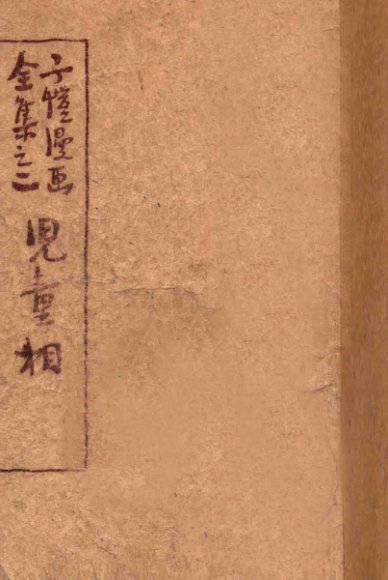 子愷漫画
全集之二
児童相